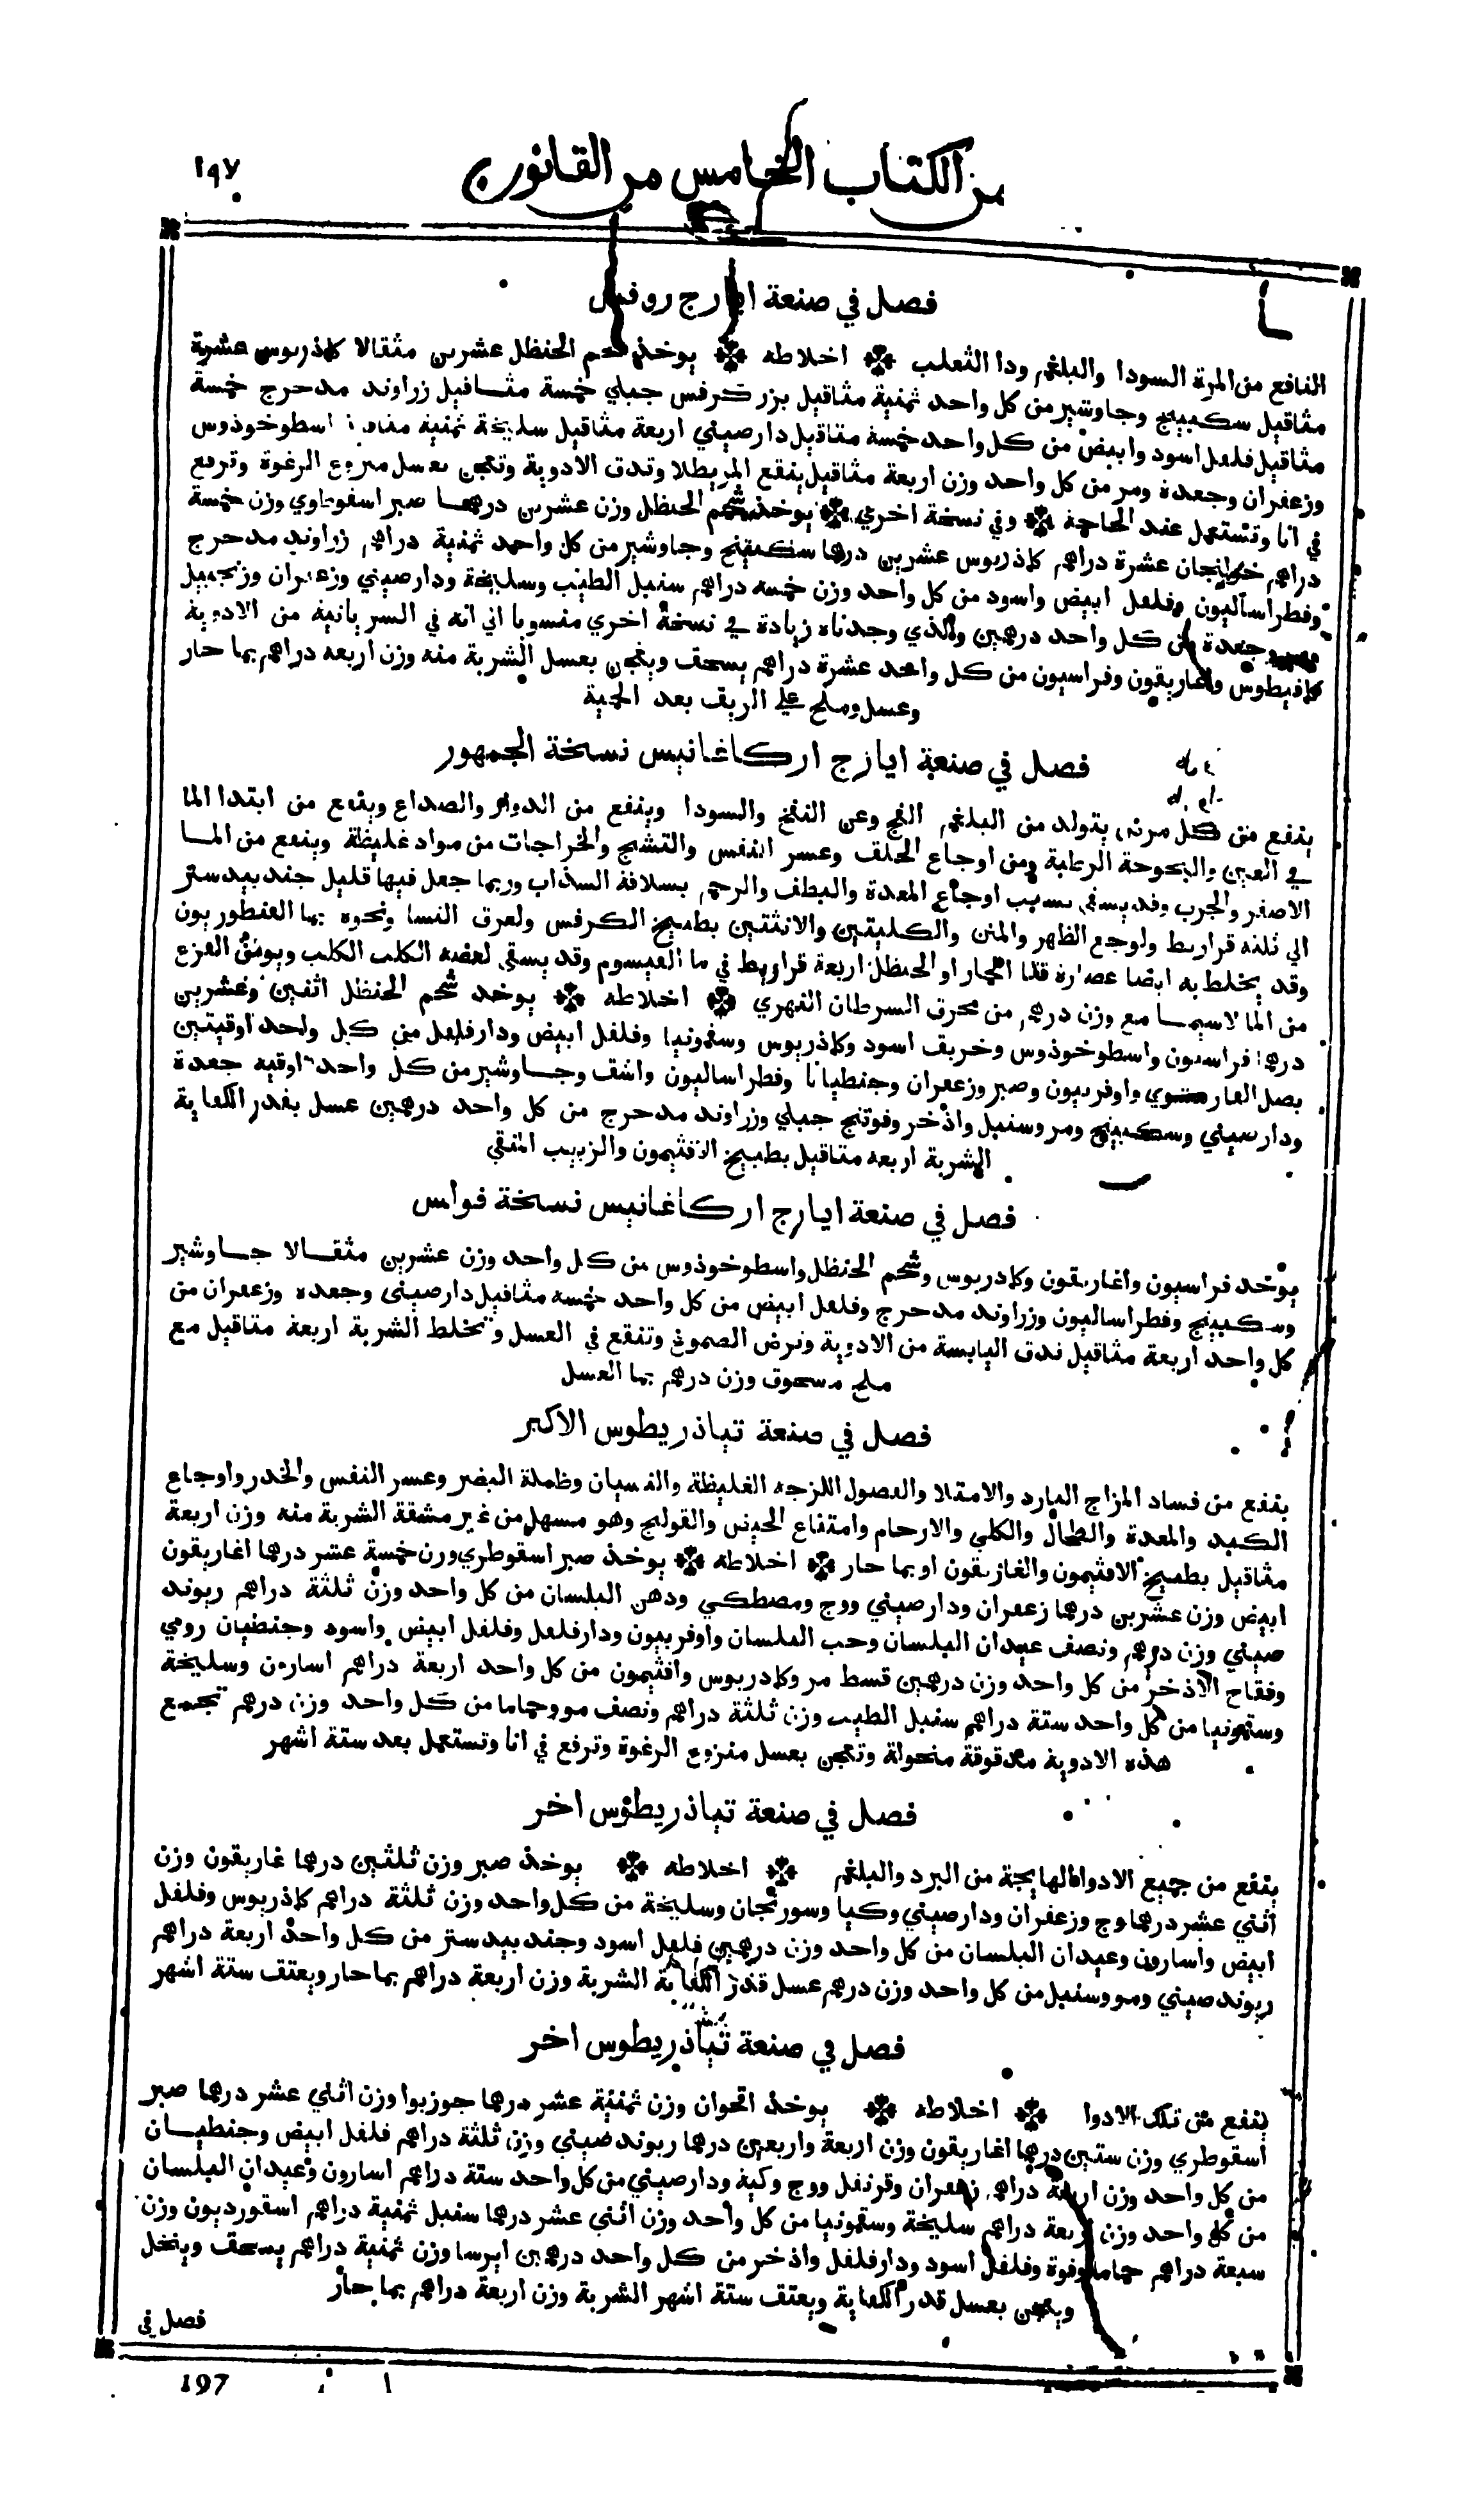 من الكتاب الخامس من القانون
١٩٧
فصل في صنعة ايارج روفس
النافع من المرة السودا والبلغم ودا الثعلب اخلاطه يوخذ شحم الحنظل عشرين مثقالا كماذريوس عشرة
مثاقيل سكبينج وجاوشير من كل واحد ثمنية مثاقيل بزر كرفس جبلي خمسة مثاقيل زراوند مدحرج خمسة
مثاقيل فلفل اسود وابيض من كل واحد خمسة مثاقيل دارصيني اربعة مثاقيل سليخة ثمنية اسطوخوذوس
وزعفران وجعدة ومر من كل واحد وزن اربعة مثاقيل ينقع المر بطلا وتدق الادوية وتعجن بعسل منزوع الرغوة وترفع
في انا وتستعمل عند الحاجة وفي نسخة اخري يوخذ شحم الحنظل وزن عشرين درهما صبر اسقوطري وزن خمسة
دراهم خولنجان عشرة دراهم كماذريوس عشرين درهما سكبينج وجاوشير من كل واحد ثمنية دراهم زراوند مدحرج
وفطراساليون وفلفل ابيض واسود من كل واحد وزن خمسة دراهم سنبل الطيب وسليخة ودارصيني وزعفران وزنجبيل
وجعدة من كل واحد درهمين والذي وجدناه زيادة في نسخة اخري منسوبا اني انه في السريانية من الادوية
كمافيطوس واغاريقون وفراسيون من كل واحد عشرة دراهم يسحق ويعجن بعسل الشربة منه وزن اربعه دراهم بما حار
وعسل وملح علي الريق بعد الحمية
فصل في صنعة ايارج اركاغانيس نسخة الجمهور
ينفع من كل مرض يتولد من البلغم الني وعن النفخ والسودا وينفع من الدوار والصداع وينفع من ابتدا الما
في العين والبحوحة الرطبة ومن اوجاع الحلق وعسر النفس والتشنج والخراجات من مواد غليظة وينفع من الما
الاصفر والجرب وقد يسقي بسبب اوجاع المعدة والبطن والرحم بسلاقة السذاب وربما جعل فيها قليل جندبيدستر
الي ثلثه قراريط ولوجع الظهر والمتن والكليتين والانثتين بطبيخ الكرفس ولعرق النسا ونحوه بما القنطوريون
وقد يخلط به ايضا عصارة قثا الحمار او الحنظل اربعة قراريط في ما القيسوم وقد يسقي لعضه الكلب الكلب ويومن الفزع
من الما لاسيما مع وزن درهم من محرق السرطان النهري اخلاطه يوخذ شحم الحنظل اثنين وعشرين
درهما فراسيون واسطوخوذوس وخربق اسود وكماذريوس وسقمونيا وفلفل ابيض ودارفلفل من كل واحد اوقيتين
بصل الفار مشوي واوفربيون وصبر وزعفران وجنطيانا وفطراساليون واشق وجاوشير من كل واحد اوقيه جعدة
ودارصيني وسكبينج ومر وسنبل واذخر وفوتنج جبلي وزراوند مدحرج من كل واحد درهمين عسل بقدر الكفاية
الشربة اربعه مثاقيل بطبيخ الافثيمون والزبيب المنقي
فصل في صنعة ايارج اركاغانيس نسخة فولس
يوخذ فراسيون واغاريقون وكمادريوس وشحم الحنظل واسطوخوذوس من كل واحد وزن عشرين مثقالا جاوشير
وسكبينج وفطراساليون وزراوند مدحرج وفلفل ابيض من كل واحد خمسه مثاقيل دارصيني وجعده وزعفران من
كل واحد اربعة مثاقيل تدق اليابسة من الادوية وترض الصموغ وتنقع في العسل وتخلط الشربة اربعة مثاقيل مع
ملح مسحوق وزن درهم بما العسل
فصل في صنعة تياذريطوس الاكبر
ينفع من فساد المزاج البارد والامتلا والفصول اللزجه الغليظة والنسيان وظلمة البصر وعسر النفس والخدر واوجاع
الكبد والمعدة والطحال والكلي والارحام وامتناع الحيض والقولنج وهو مسهل من غير مشقة الشربة منه وزن اربعة
مثاقيل بطبيخ الافثيمون والغاريقون او بما حار اخلاطه يوخذ صبر اسقوطري وزن خمسة عشر درهما اغاريقون
ابيض وزن عشرين درهما زعفران ودارصيني ووج ومصطكي ودهن البلسان من كل واحد وزن ثلثة دراهم ريوند
صيني وزن درهم ونصف عيدان البلسان وحب البلسان واوفربيون ودارفلفل وفلفل ابيض واسود وجنطيان رومي
وفقاح الاذخر من كل واحد وزن درهمين قسط مر وكمادريوس وافثيمون من كل واحد اربعة دراهم اسارون وسليخة
وسقمونيا من كل واحد ستة دراهم سنبل الطيب وزن ثلثة دراهم ونصف مو وحماما من كل واحد وزن درهم تجمع
هذه الادوية مدقوقة منخولة وتعجن بعسل منزوع الرغوة وترفع في انا وتستعمل بعد ستة اشهر
فصل في صنعة تياذريطوس اخر
ينفع من جميع الادوا الهايجة من البرد والبلغم اخلاطه يوخذ صبر وزن ثلثين درهما غاريقون وزن
اثني عشر درهما وج وزعفران ودارصيني وكيا وسورنجان وسليخة من كل واحد وزن ثلثة دراهم كماذريوس وفلفل
ابيض واسارون وعيدان البلسان من كل واحد وزن درهمين فلفل اسود وجندبيدستر من كل واحد اربعة دراهم
ريوند صيني ومو وسنبل من كل واحد وزن درهم عسل قدر الكفاية الشربة وزن اربعة دراهم بما حار ويعتق ستة اشهر
فصل في صنعة تياذريطوس اخر
ينفع من تلك الادوا اخلاطه يوخذ اقحوان وزن ثمنية عشر درهما جوزبوا وزن اثني عشر درهما صبر
اسقوطري وزن ستين درهما اغاريقون وزن اربعة واربعين درهما ريوند صيني وزن ثلثة دراهم فلفل ابيض وجنطيان
من كل واحد وزن اربعة دراهم زعفران وقرنفل ووج وكية ودارصيني من كل واحد ستة دراهم اسارون وعيدان البلسان
من كل واحد وزن اربعة دراهم سليخة وسقمونيا من كل واحد وزن اثني عشر درهما سنبل ثمنية دراهم اسقورديون وزن
سبعة دراهم حماما وفوة وفلفل اسود ودارفلفل واذخر من كل واحد درهمين ايرسا وزن ثمنية دراهم يسحق وينخل
ويعجن بعسل قدر الكفاية ويعتق ستة اشهر الشربة وزن اربعة دراهم بما حار
فصل في
197